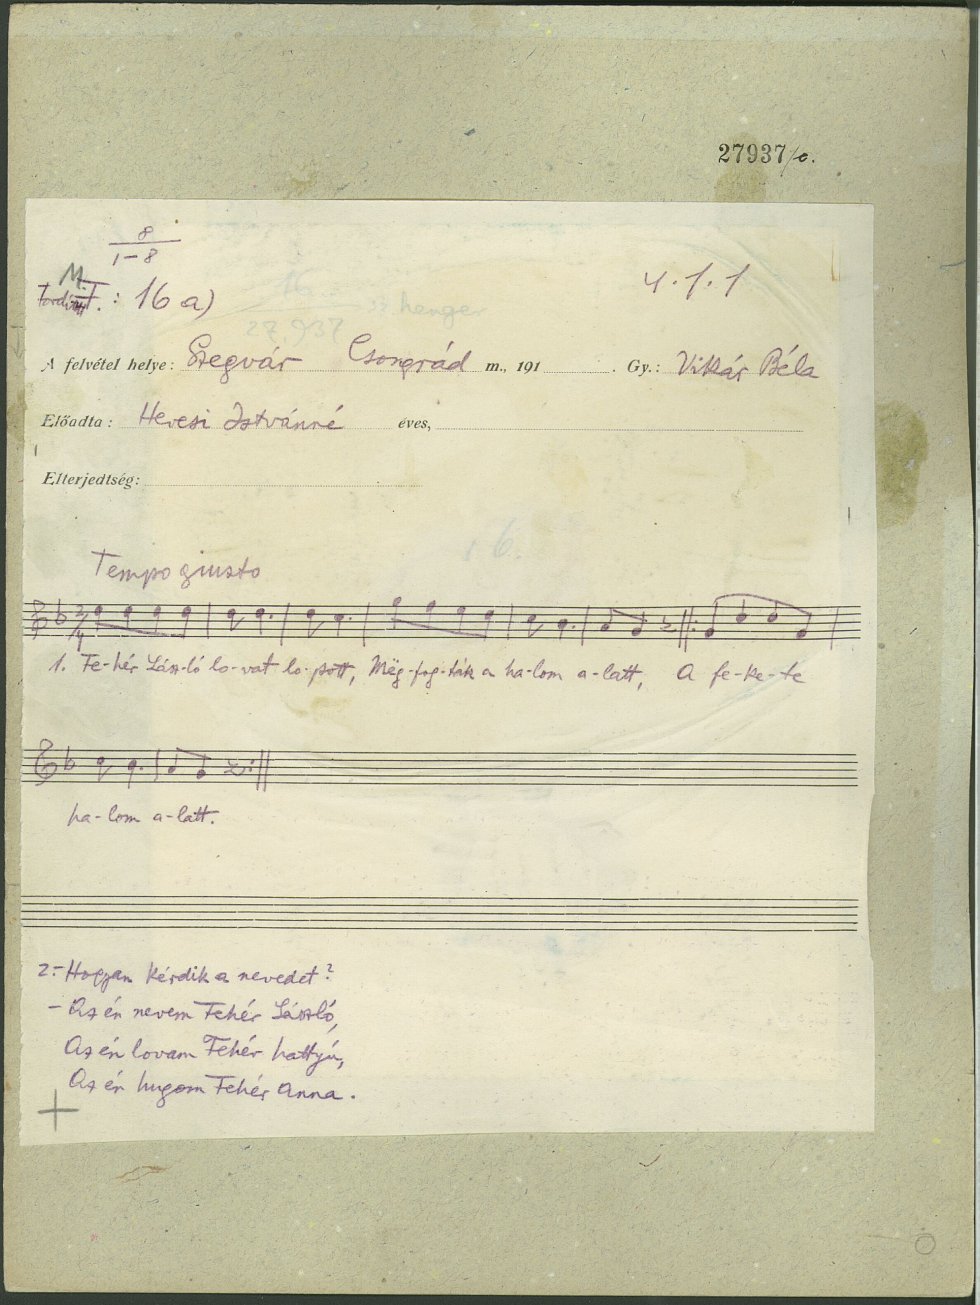 27937/c.
8
1-8
M.
F.: 16 a)
4. 1. 1
A felvétel helye: Szegvár Csongrád m., 191 . Gy.: Vikár Béla
Előadta: Hevesi Istvánné éves,
Elterjedtség:
Tempo giusto
2/4
1. Fe-hér Lász-ló lo-vat lo-pott, Mëg-fog-ták a ha-lom a-latt, A fe-ke-te
ha-lom a-latt.
2.- Hogyan kérdik a nevedet?
- Az én nevem Fehér László,
Az én lovam Fehér hattyú,
Az én hugom Fehér Anna.